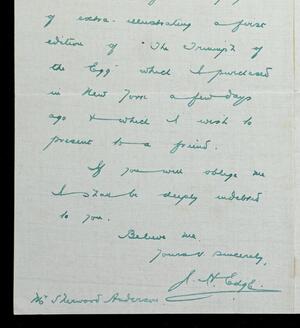 of extra-illustrating a first
edition of "The Triumph of
the Egg" which I purchased
in New York a few days
ago & which I wish to
present to a friend.
If you will oblige me
I shall be deeply indebted
to you.
Believe me
Yours sincerely,
Mr Sherwood Anderson